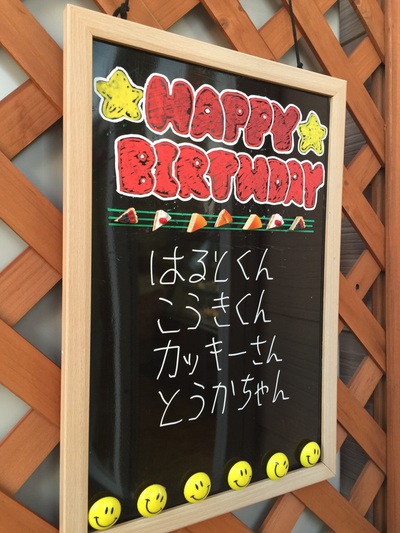 HAPPY
BIRTHDAY
はるとくん
こうきくん
カッキーさん
とうかちゃん